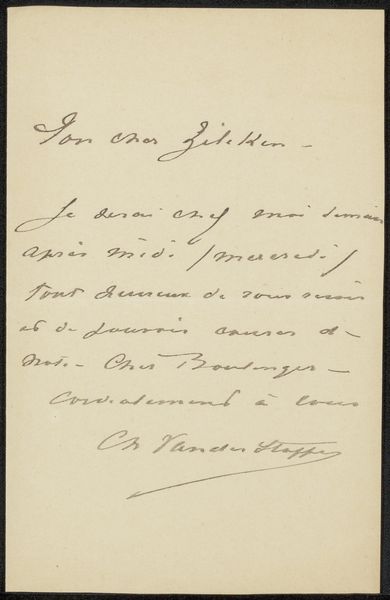 Mon cher Zilcken –
Je serai chez moi demain
après midi (mercredi)
tout heureux de vous revoir
et de pouvoir causer de
notre cher Boulenger –
Cordialement à vous
Ch Vander Stappen